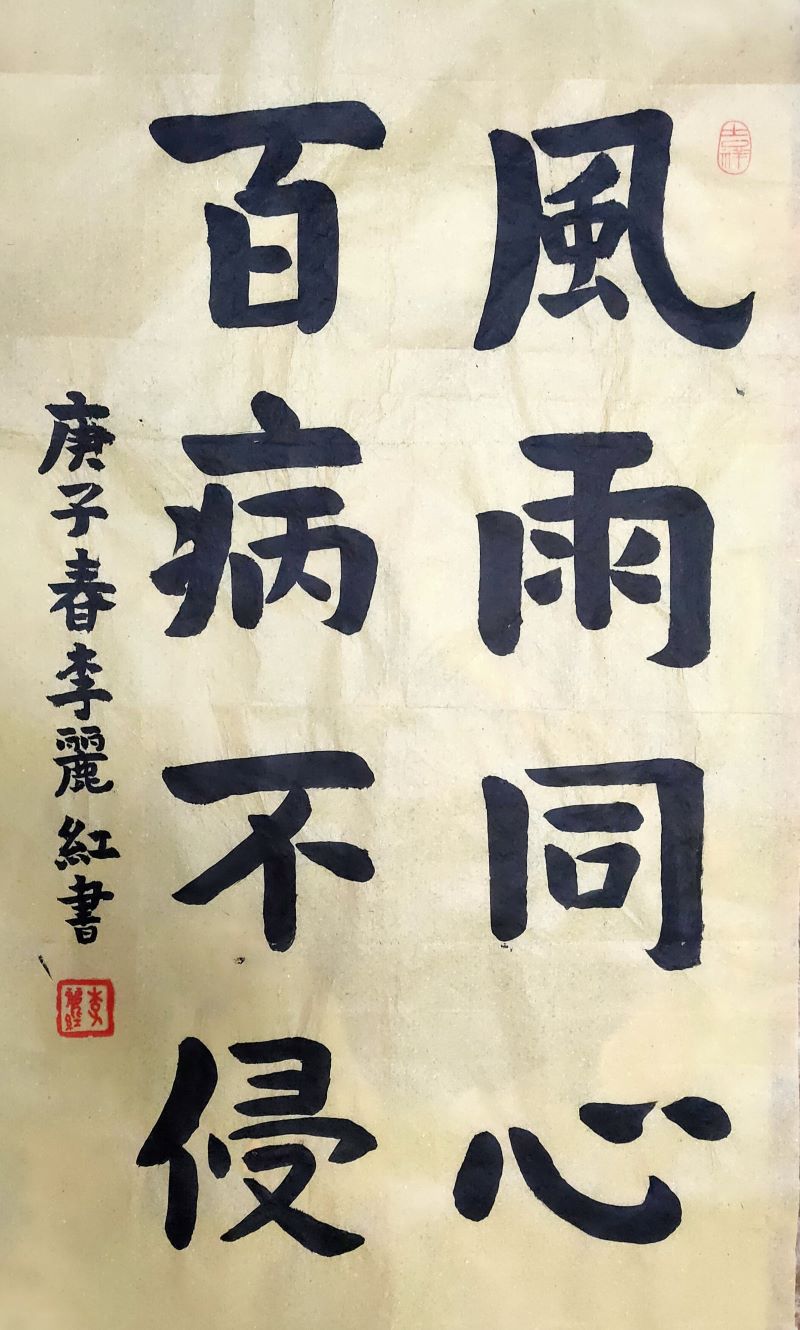 風雨同心
百病不侵
庚子春李麗紅書
李麗紅